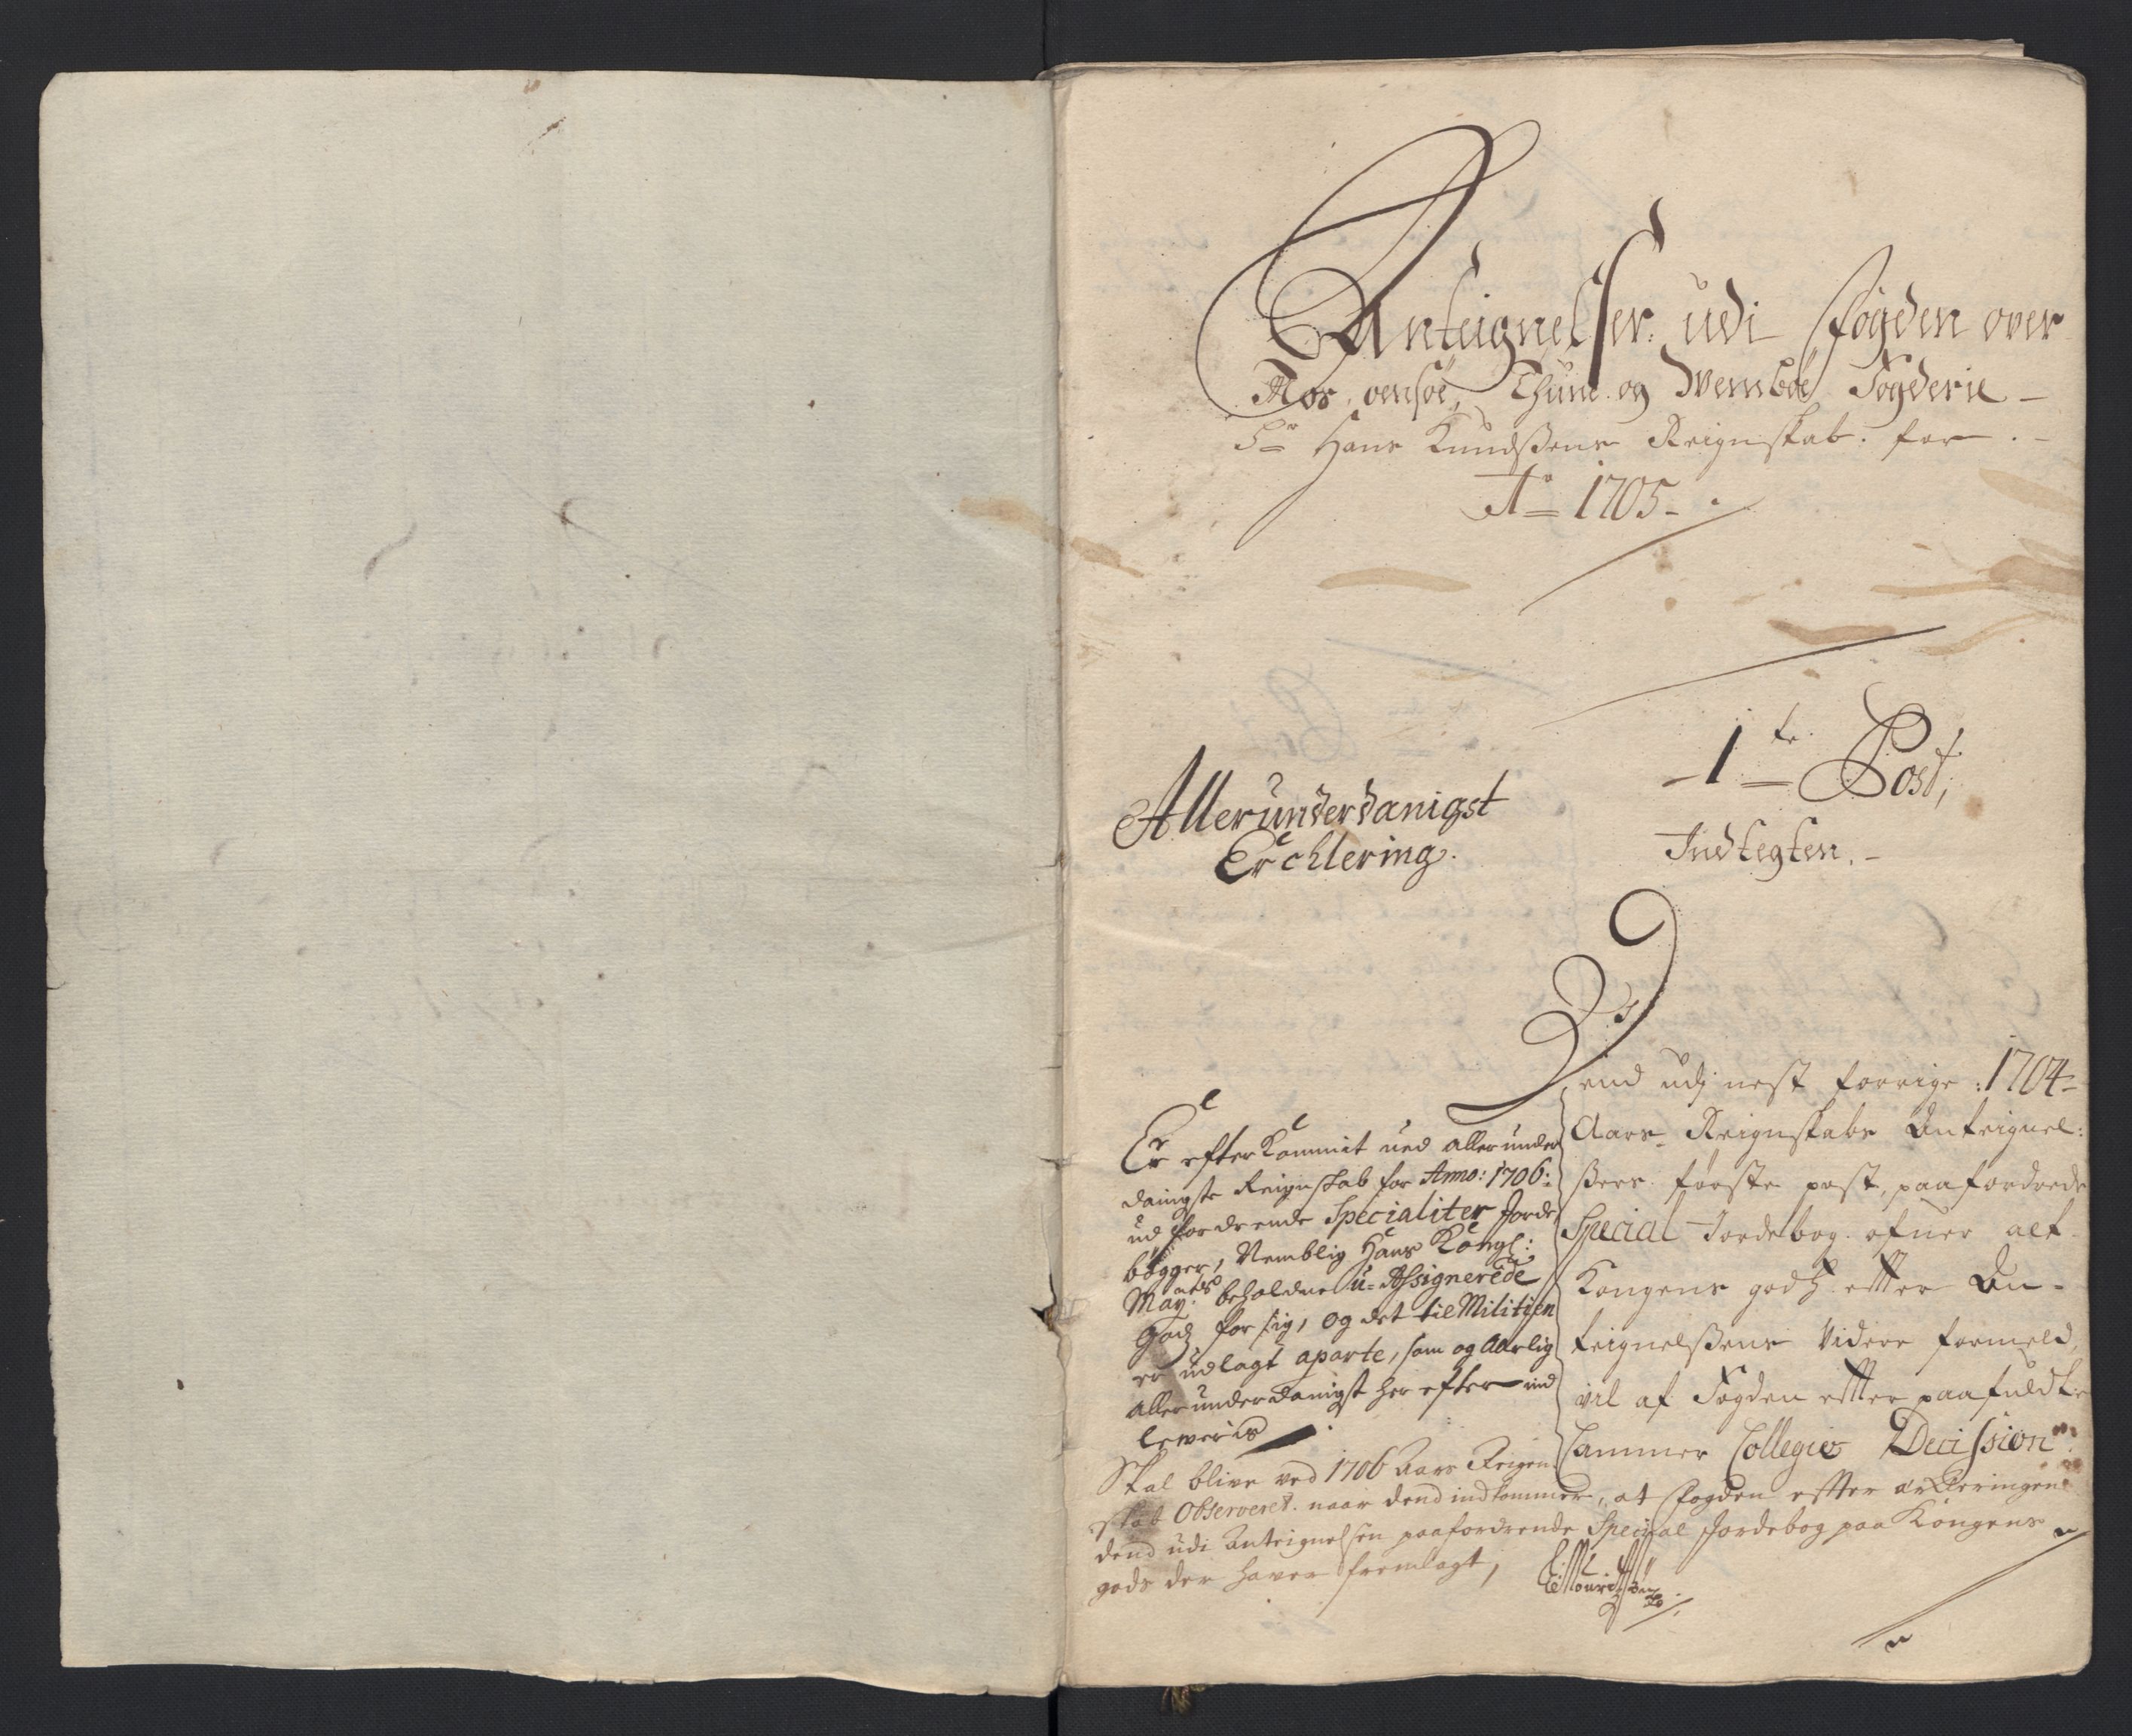 Anteignelser udi Fogden over
Mos, Thune og Wembøe Fogderie –
Sr Hans Knudsens Reignskab. for. –
Ao 1705 – .
1te. Post,
Indtegten. –
Allerunderdanigst
Erchlering.
end udj nest forrige: 1704
Aars Reignskabs Anteignel:
ßers første post, paafordrede
Special Jordebog ofuer alt
Kongens godz. effter An-
teignelßens videre formeld,
vil af Fogden effter paafuldte
Cammer Collegie Decission
Er efterkommit ved allerunder
danigste Reignskab for Anno: 1706:
udfordrende Specialiter Jorde
bøgger, Nemblig Hans Kongl:
May:ts beholdne u-Assignerede
Godz for sig, og det til Militien
er udlagt aparte, som og Aarlig
allerunderdanigst her efter ind
leveris
Skal blive ved 1706 Aars Reigen
skab Observeret. naar dend indkommer, at Fogden effter erkleringen
dend udi Anteignelsen paafordrende Special Jordebog paa Kongens
gods der haver fremlagt,